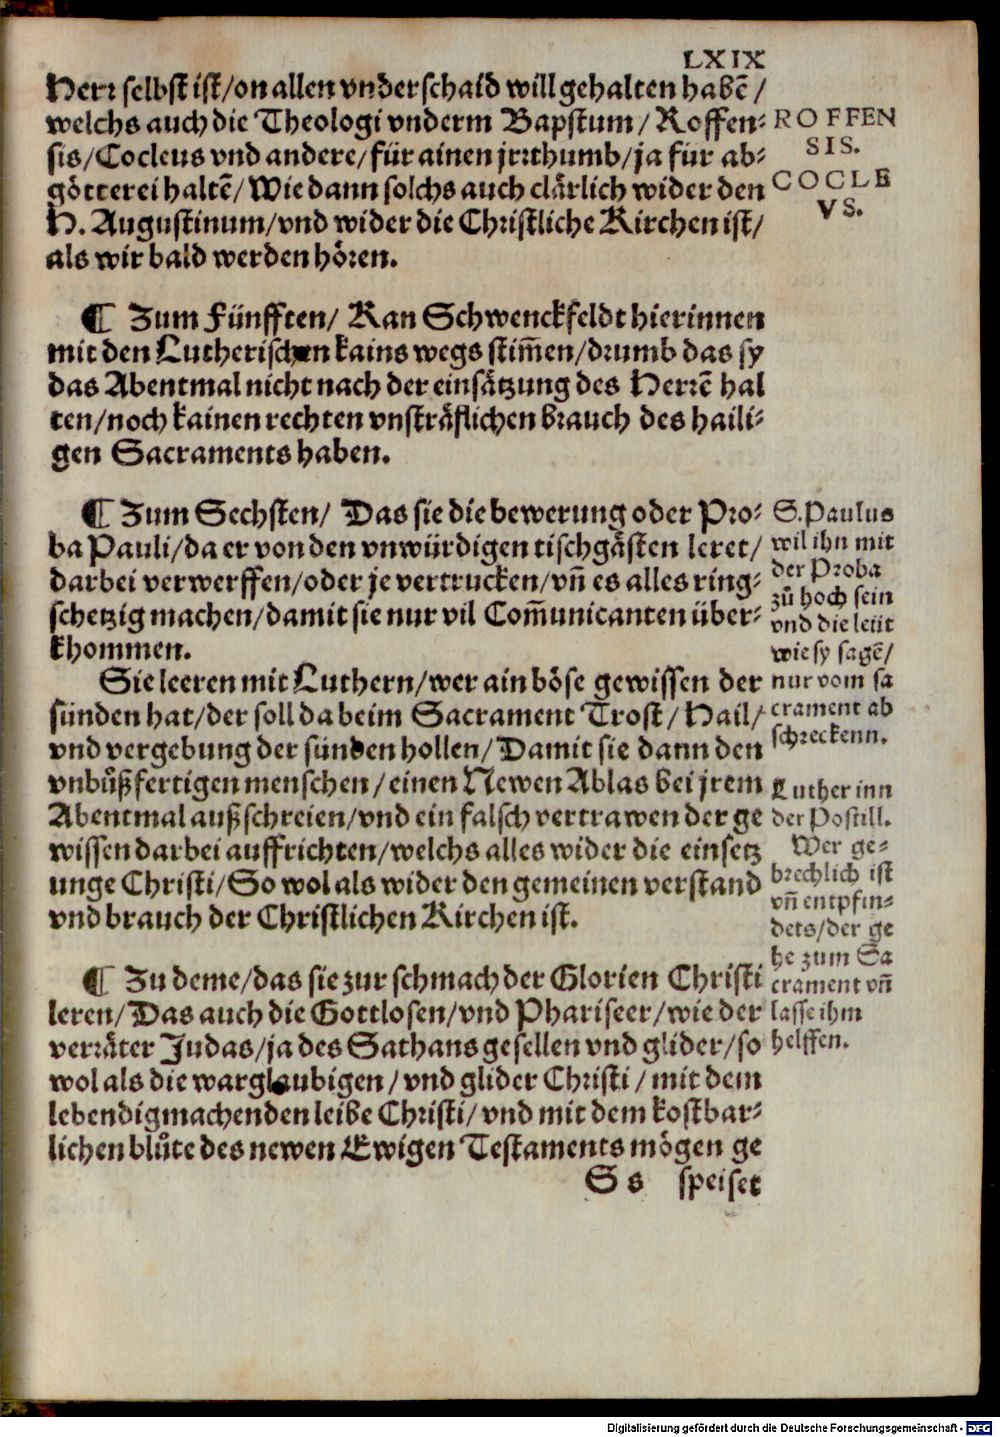 LXIX
Herr selbst ist/on allen vnderschaid will gehalten habē/
welchs auch die Theologi vnderm Bapstum/Roffen-
sis/Cocleus vnd andere/für ainen jrrthumb/ja für ab-
götterei haltē/Wie dann solchs auch clärlich wider den
H. Augustinum/vnd wider die Christliche Kirchen ist/
als wir bald werden hören.
ROFFEN
SIS.
COCLE
VS.
¶ Zum Fünfften/ Kan Schwenckfeldt hierinnen
mit den Lutherischen kains wegs stim̄en/drumb das sy
das Abentmal nicht nach der einsätzung des Herrē hal
ten/noch kainen rechten vnsträflichen brauch des haili-
gen Sacraments haben.
¶ Zum Sechsten/ Das sie die bewerung oder Pro-
ba Pauli/da er von den vnwürdigen tischgästen leret/
darbei verwerffen/oder je vertrucken/vn̄ es alles ring-
schetzig machen/damit sie nur vil Com̄unicanten über-
khommen.
S. Paulus
wil ihn mit
der Proba
zů hoch sein
vnd die leüt
wie sy sagē/
nur vom sa
crament ab
schreckenn.
Sie leeren mit Luthern/wer ain böse gewissen der
sünden hat/der soll da beim Sacrament Trost/Hail/
vnd vergebung der sünden hollen/Damit sie dann den
vnbůßfertigen menschen/einen Newen Ablas bei jrem
Abentmal außschreien/vnd ein falsch vertrawen der ge
wissen darbei auffrichten/welchs alles wider die einsetz
unge Christi/So wol als wider den gemeinen verstand
vnd brauch der Christlichen Kirchen ist.
Luther inn
der Postill.
Wer ge-
brechlich ist
vn̄ entpfin-
dets/der ge
he zum Sa
crament vn̄
lasse ihm
helffen.
¶ Zu deme/das sie zur schmach der Glorien Christi
leren/Das auch die Gottlosen/vnd Phariseer/wie der
verräter Judas/ja des Sathans gesellen vnd glider/so
wol als die warglaubigen/vnd glider Christi/mit dem
lebendigmachenden leibe Christi/vnd mit dem kostbar-
lichen blůte des newen Ewigen Testaments mögen ge
S s speiset
Digitalisierung gefördert durch die Deutsche Forschungsgemeinschaft - DFG